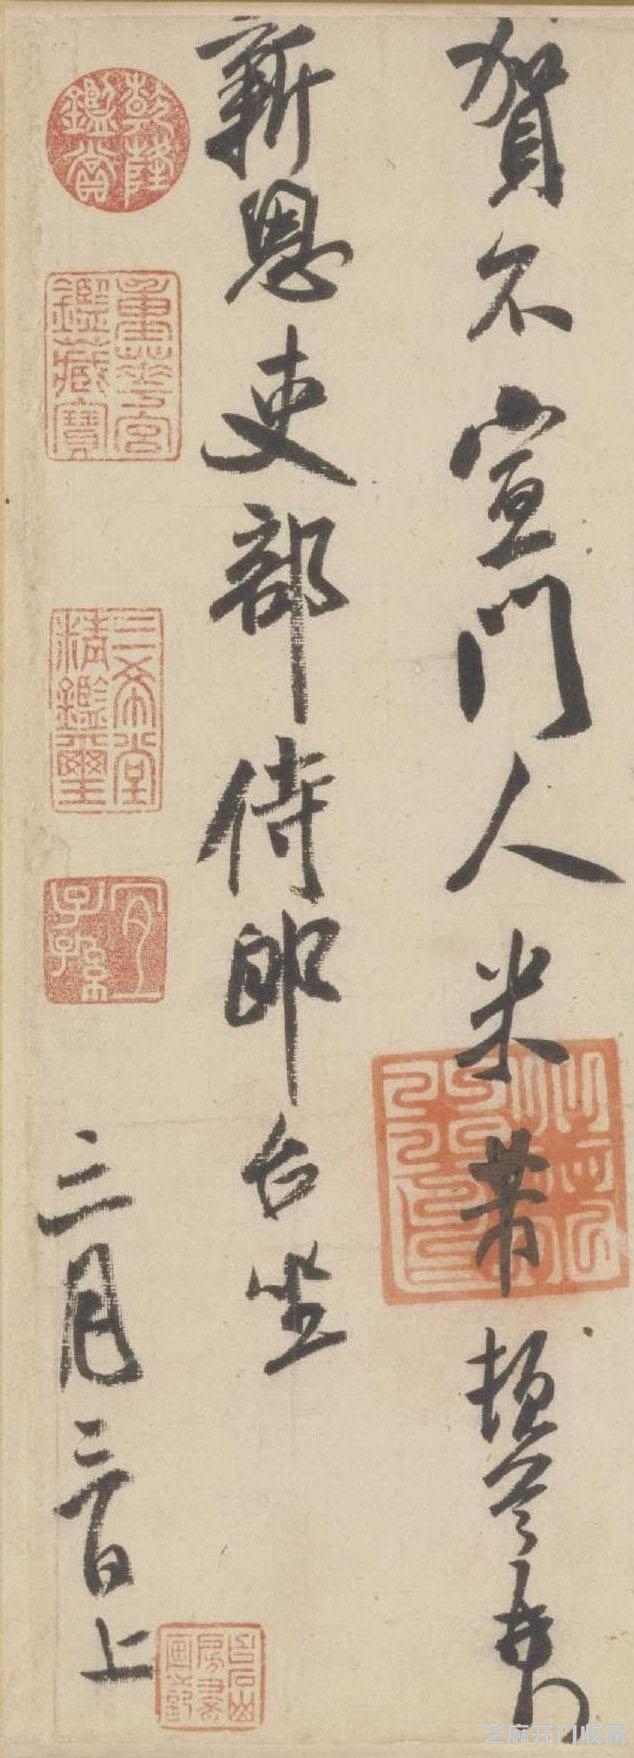 賀不宣門人米芾頓首再拜
新恩吏部侍郎台坐
三月三日上
乾隆鑑賞
重華宮鑑藏寶
三希堂精鑑璽
宜子孫
芝麻开门收藏